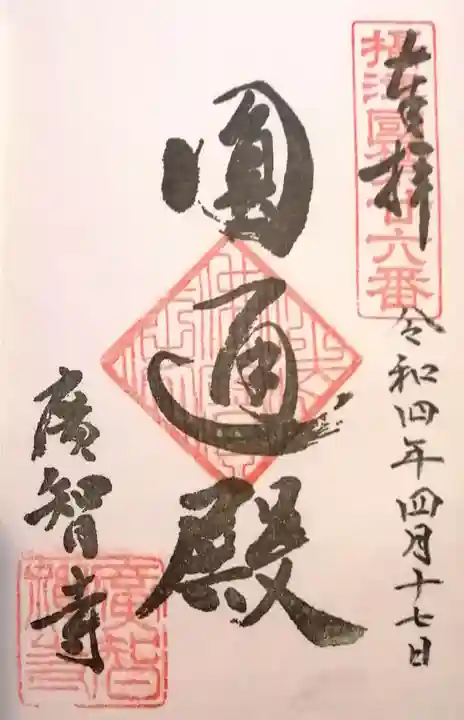 奉拝
攝津國第廿六番
令和四年四月十七日
圓通殿
廣智寺
廣智禅寺